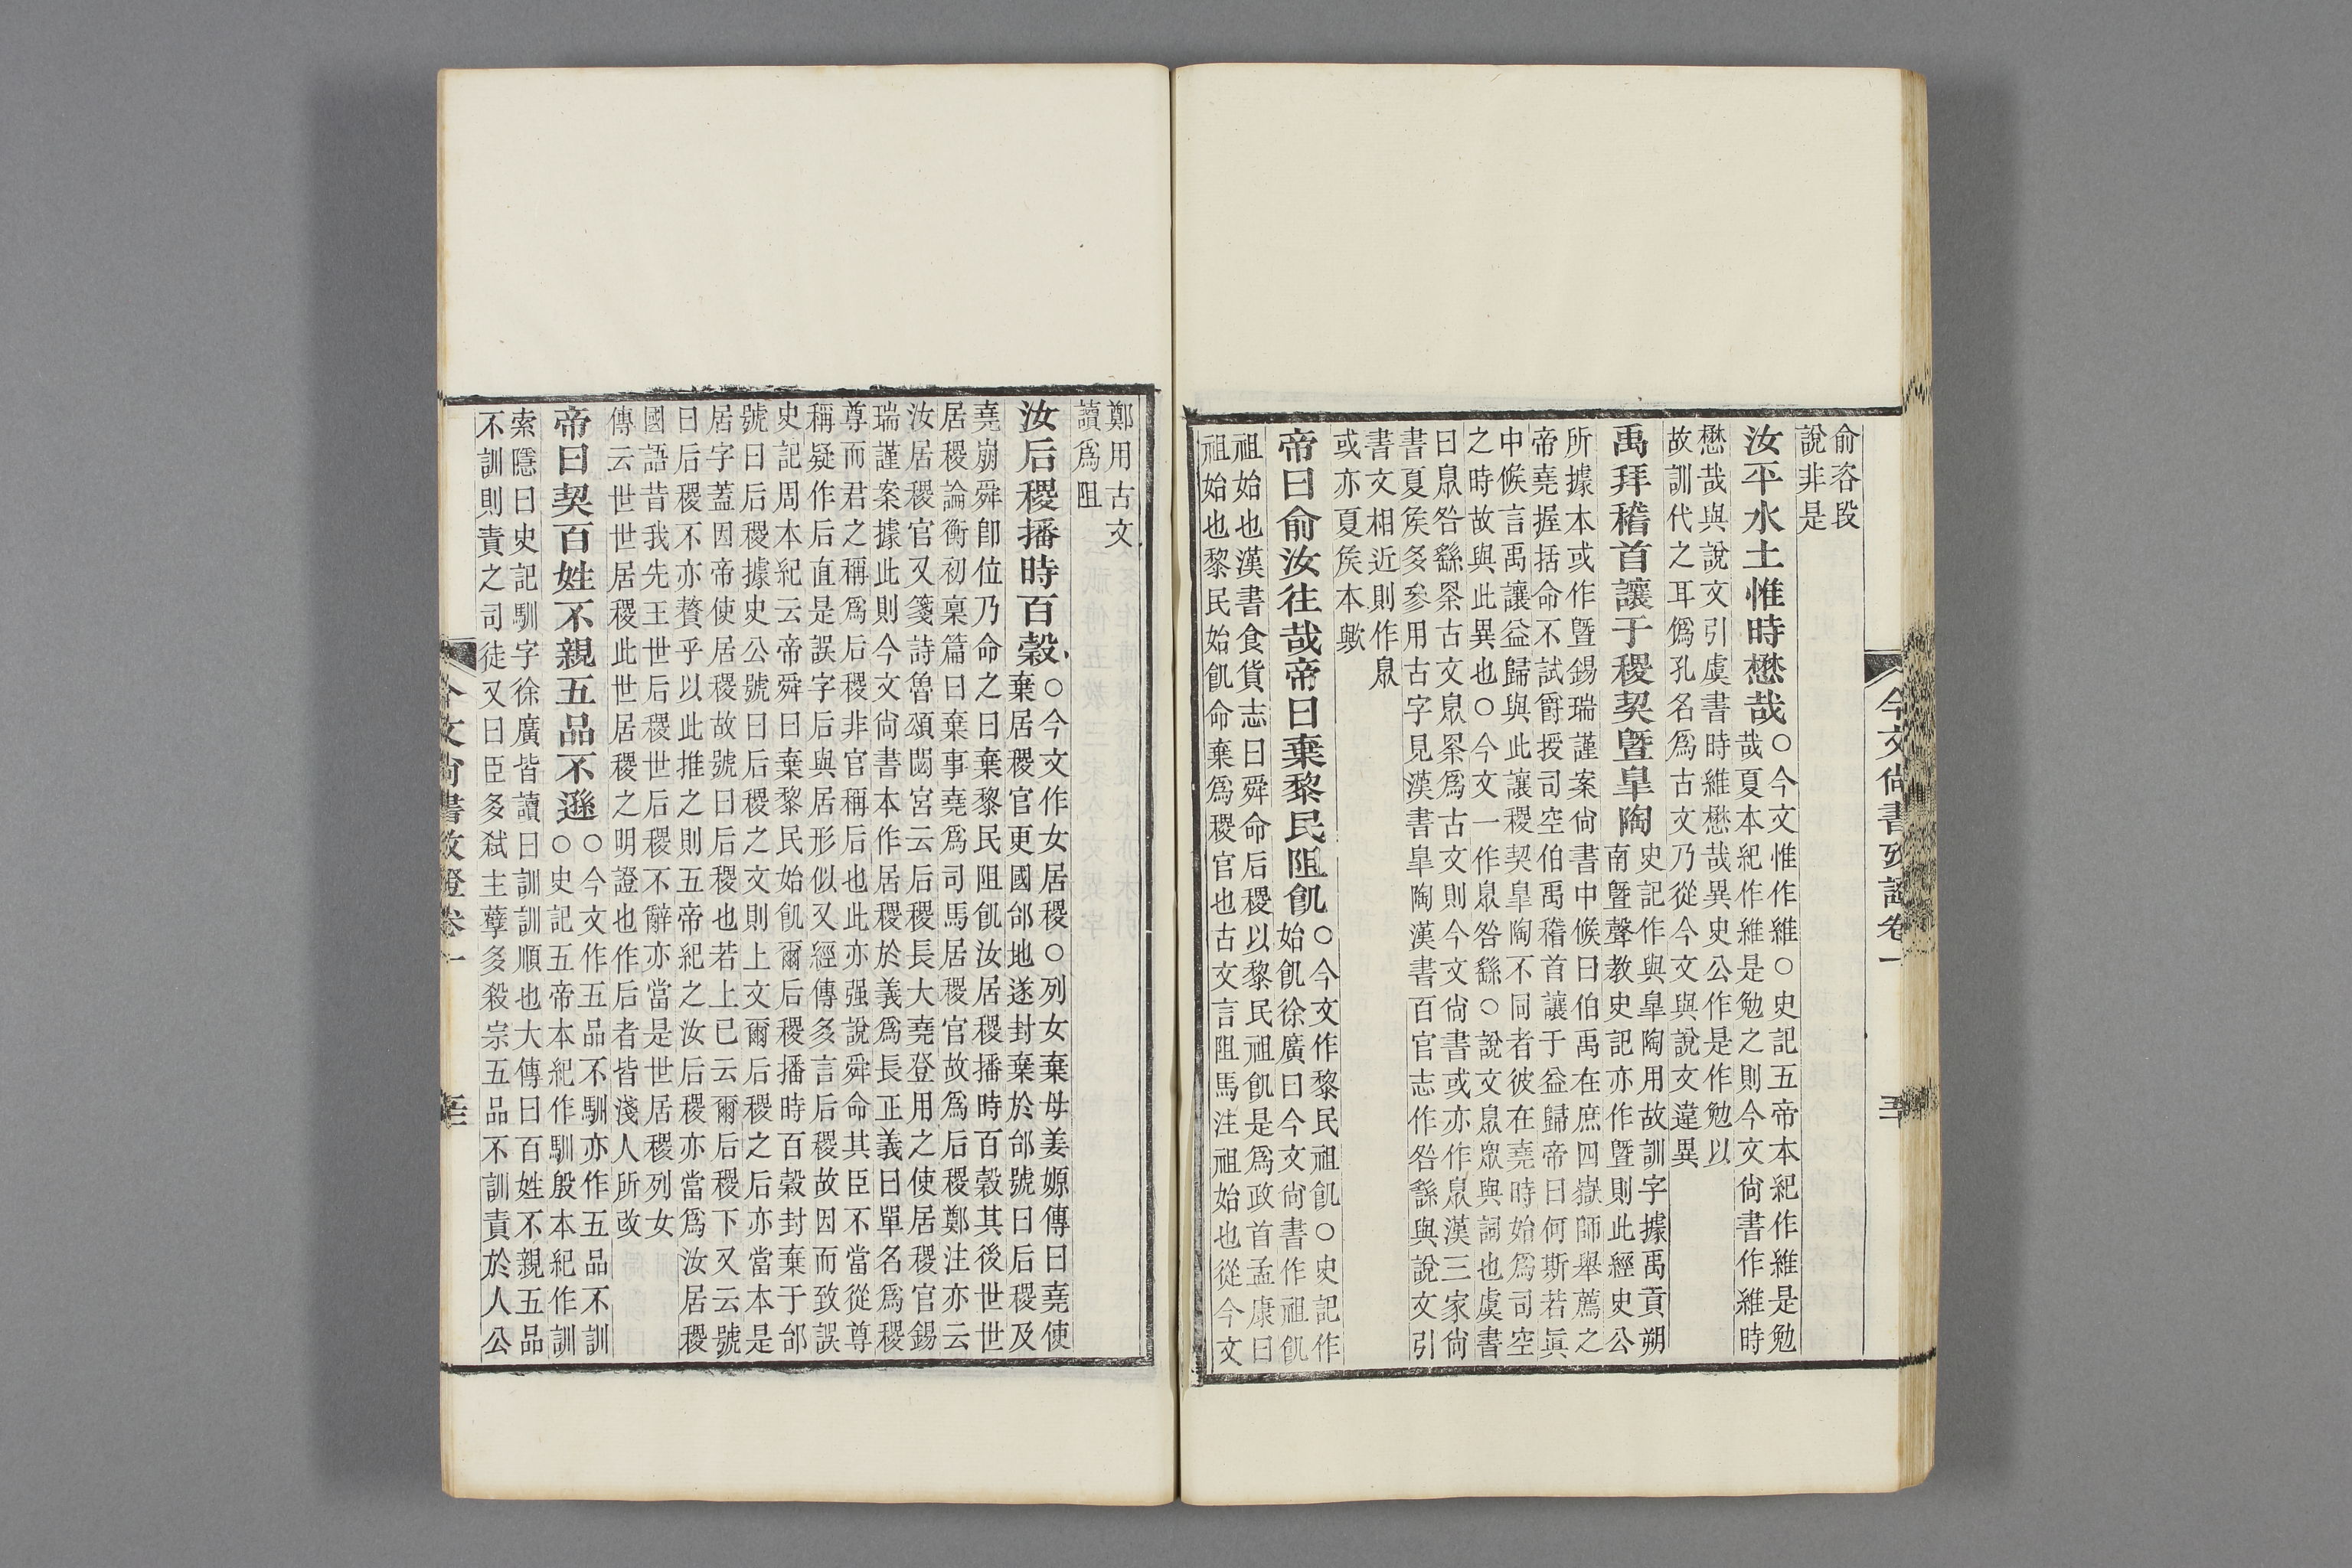 俞咨段
說非是
汝平水土惟時懋哉○今文惟作維○史記五帝本紀作維是勉
哉夏本紀作維是勉之則今文尚書作維時
懋哉與說文引虞書時維懋哉異史公作是作勉以
故訓代之耳僞孔名爲古文乃從今文與說文違異
禹拜稽首讓于稷契暨皐陶史記作與皐陶用故訓字據禹貢朔
南曁聲教史記亦作曁則此經史公
所據本或作曁錫瑞謹案尚書中候曰伯禹在庶四嶽師舉薦之
帝堯握括命不試爵授司空伯禹稽首讓于益歸帝曰何斯若眞
中候言禹讓益歸與此讓稷契皐陶不同者彼在堯時始爲司空
之時故與此異也○今文一作臮咎繇○說文臮眾與詞也虞書
曰臮咎繇古文臮爲古文則今文尚書或亦作臮漢三家尚
書夏矦多參用古字見漢書皐陶漢書百官志作咎繇與說文引
書文相近則作臮
或亦夏矦本歟
帝曰俞汝往哉帝曰棄黎民阻飢○今文作黎民祖飢○史記作
始飢徐廣曰今文尚書作祖飢
祖始也漢書食貨志曰舜命后稷以黎民祖飢是爲政首孟康曰
祖始也黎民始飢命棄爲稷官也古文言阻馬注祖始也從今文
今文尚書攷證卷一
鄭用古文
讀爲阻
汝后稷播時百穀○今文作女居稷○列女棄母姜嫄傳曰堯使
棄居稷官更國邰地遂封棄於邰號曰后稷及
堯崩舜卽位乃命之曰棄黎民阻飢汝居稷播時百穀其後世世
居稷論衡初稟篇曰棄事堯爲司馬居稷官故爲后稷鄭注亦云
汝居稷官又箋詩魯頌閟宮云后稷長大堯登用之使居稷官錫
瑞謹案據此則今文尚書本作居稷於義爲長正義曰單名爲稷
尊而君之稱爲后稷非官稱后也此亦强說舜命其臣不當從尊
稱疑作后直是誤字后與居形似又經傳多言后稷故因而致誤
史記周本紀云帝舜曰棄黎民始飢爾后稷播時百穀封棄于邰
號曰后稷據史公號曰后稷之文則上文爾后稷之后亦當本是
居字蓋因帝使居稷故號曰后稷也若上已云爾后稷下又云號
曰后稷不亦贅乎以此推之則五帝紀之汝后稷亦當爲汝居稷
國語昔我先王世后稷世后稷不辭亦當是世居稷列女
傳云世世居稷此世居稷之明證也作后者皆淺人所改
帝曰契百姓不親五品不遜○今文作五品不馴亦作五品不訓
○史記五帝本紀作馴殷本紀作訓
索隱曰史記馴字徐廣皆讀曰訓訓順也大傳曰百姓不親五品
不訓則責之司徒又曰臣多弑主孽多殺宗五品不訓責於人公
今文尚書攷證卷一